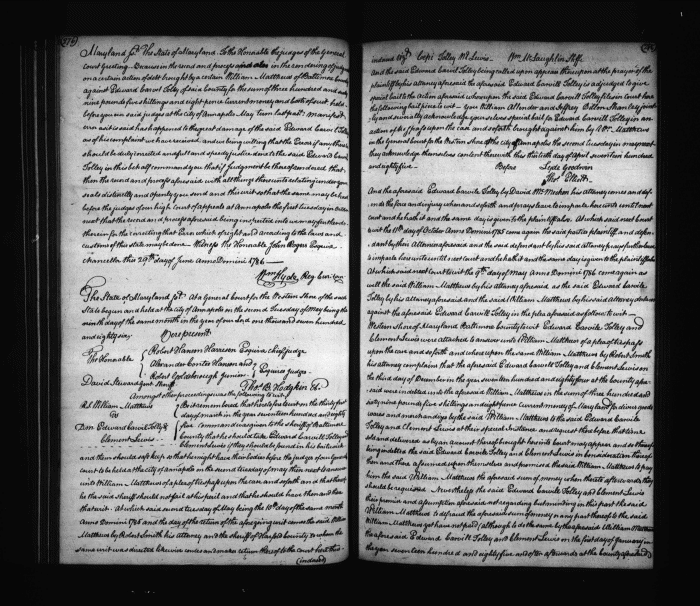 276
Maryland sct. The State of Maryland. To the Honorable the judges of the General
Court Greeting. Because in the record and process and also in the rendering of judgment
on a certain action of debt brought by a certain William Matthews of Baltimore County
against Edward Carvil Tolley of said county for the sum of three hundred and sixty
nine pounds five shillings and eight pence current money and costs of suit held
before you our said judges at the city of Annapolis May term last past: manifest
error as it is said has happened to the great damage of the said Edward Carvil Tolley
as of his complaint we have received and we being willing that the Error if any there
should be duly corrected and full and speedy justice done to the said Edward Carvil
Tolley in this behalf command you that if judgment be thereof rendered that
then the record and process aforesaid with all things thereunto relating under your
seals distinctly and openly you send and this writ so that the same may be had
before the judges of our high court of appeals at Annapolis the first tuesday in
next that the record and process aforesaid being inspected we to cause further to be done
therein for the correcting that Error which of right and according to the laws and
customs of this state may be done. Witness the Honorable John Rogers Esquire
Chancellor this 29th day of June Anno Domini 1786—
Wm Hyde, Reg Cur Can
The State of Maryland sct. At a General Court for the Western Shore of the said
State begun and held at the city of Annapolis on the second Tuesday of May being the
ninth day of the same month in the year of our Lord one thousand seven hundred
and eighty six
Were present
The Honorable
Robert Hanson Harrison Esquire chief judge
Alexander Contee Hanson and
Robert Goldsborough Junior
Esquires judges
David Steuard Gent Sheriff
Thos B. Hodgkin Cl.
Amongst other proceedings was the following to wit.
William Matthews
vs
Edward Carvil Tolley &
Clement Lewis
Be it remembered that heretofore to wit on the thirty first
day of march in the year seventeen hundred and eighty
five command was given to the sheriff of Baltimore
County that he should take Edward Carvil Tolley and
Clement Lewis if they should be found in his bailiwick
and them should safe keep so that he might have their bodies before the judges of our General
court to be held at the city of Annapolis on the second tuesday of may then next to answer
unto William Matthews of a plea of trespass upon the case and so forth and that thereof
he the said sheriff should not fail at his peril and that he should have then and there
that writ. At which said second tuesday of May being the 10th day of the same month
Anno Domini 1785 and the day of the return of the aforegoing writ comes the said William
Matthews by Robert Smith his attorney and the sheriff of Harford County to whom the
same writ was directed likewise comes and makes return thereof to the court here thus
(indorsed)
indorsed to wit Cepi Tolley Lewis. Wm McLaughlin Shff.
And the said Edward Carvil Tolley being called upon appears thereupon at the prayer of the
plaintiff by his attorney aforesaid the aforesaid Edward Carvil Tolley is adjudged to give
special bail to the action aforesaid whereupon the said Edward Carvil Tolley brings in court here
the following bail piece to wit You William Allender and Jeffrey Dillon Stanley jointly
and severally acknowledge yourselves special bail for Edward Carvil Tolley in an
action of trespass upon the case and so forth brought against him by Wm Matthews
in the General Court for the Western Shore at the city of Annapolis the second tuesday in may next
they acknowledge themselves content therewith this thirtieth day of april seventeen hundred
and eighty five. Before Lyde Goodwin
Thos Elliott.
And the aforesaid Edward Carvil Tolley by David McMechen his attorney comes and defends
the force and injury when and so forth and prays leave to imparle here until next
court and he hath it and the same day is given to the plaintiff also. At which said next court
to wit the 11th day of October Anno Domini 1785 come again the said parties plaintiff and defendant
by their Attornies aforesaid and the said defendant by his said Attorney prays further leave
to imparle here until next court and he hath it and the same day is given to the plaintiff also.
At which said next court to wit the 9th day of May Anno Domini 1786 come again as
well the said William Matthews by his attorney aforesaid, as the said Edward Carvile
Tolley by his attorney aforesaid and the said William Matthews by his said attorney declares
against the aforesaid Edward Carvile Tolley in the plea aforesaid as follows to wit—
Western Shore of Maryland Baltimore County to wit. Edward Carvile Tolley and
Clement Lewis were attached to answer unto William Matthews of a plea of trespass
upon the case and so forth and whereupon the same William Matthews by Robert Smith
his attorney complains that the aforesaid Edward Carvile Tolley and Clement Lewis on
the third day of December in the year seventeen hundred and eighty four at the county aforesaid
were indebted unto the aforesaid William Matthews in the sum of three hundred and
sixty nine pounds five shillings and eight pence current money of Maryland for divers goods
wares and merchandizes by the said William Matthews to the said Edward Carvile
Tolley and Clement Lewis at their special Instance and request there before that time
sold and delivered as by an account thereof brought here into court may appear and so thereof
being indebted the said Edward Carvile Tolley and Clement Lewis in consideration thereof
then and there assumed upon themselves and promised the said William Matthews to pay
him the said William Matthews the aforesaid sum of money when thereto afterwards they
should be required. Nevertheless the said Edward Carvile Tolley and Clement Lewis
their promise and assumption aforesaid not regarding but minding in this part the said
William Matthews to defraud the aforesaid sum of money or any part thereof to the said
William Matthews yet have not paid (although to do the same by the aforesaid William Matthews
the aforesaid Edward Carvill Tolley and Clement Lewis on the first day of January in
the year seventeen hundred and eighty five and often afterwards at the county aforesaid